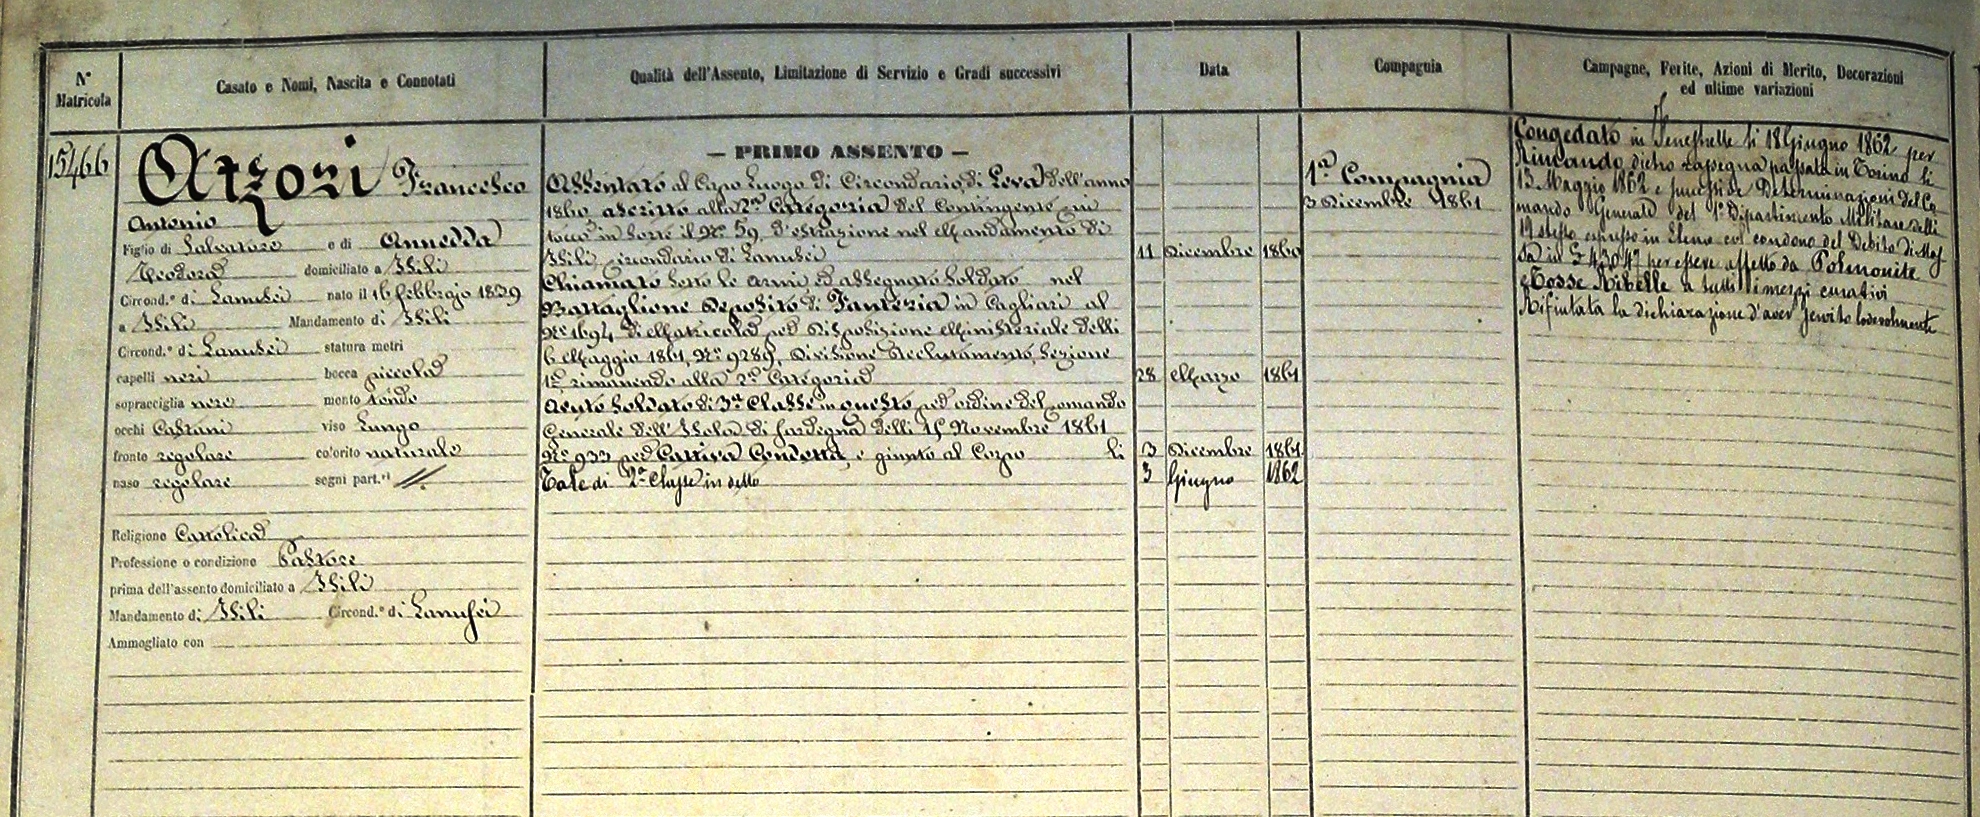 N° Matricola
Casato e Nomi, Nascita e Connotati
Qualità dell'Assento, Limitazione di Servizio e Gradi successivi
Data
Compagnia
Campagne, Ferite, Azioni di Merito, Decorazioni
ed ultime variazioni
15466
Atzori Francesco
Antonio
Figlio di Salvatore e di Annedda
Teodora domiciliato a Isili
Circond.° di Lanusei nato il 16 febbrajo 1839
a Isili Mandamento di Isili
Circond.° di Lanusei statura metri
capelli neri bocca piccola
sopracciglia nere mento tondo
occhi Castani viso Lungo
fronte regolare colorito naturale
naso regolare segni part.ri //.
Religione Cattolica
Professione o condizione Pastore
prima dell'assento domiciliato a Isili
Mandamento di Isili Circond.° di Lanusei
Ammogliato con
— PRIMO ASSENTO —
Assentato al Capo Luogo di Circondario, di Leva dell'anno
1860, ascritto alla 2a Categoria del Contingente cui
toccò in sorte il N° 59, d'estrazione nel Mandamento di
Isili circondario di Lanusei 11 Dicembre 1860
Chiamato sotto le armi ed assegnato Soldato nel
Battaglione Deposito di Fanteria in Cagliari al
N° 1694 di Matricola per Disposizione Ministeriale delli
6 Maggio 1861, N° 9289, Divisione Reclutamento, Sezione
1a rimanendo alla 2a Categoria 28 Marzo 1861
Avuto Soldato di 3a Classe in questo per ordine del Comando
Generale dell'Isola di Sardegna delli 15 Novembre 1861
N° 933 per Cattiva Condotta, e giunto al Corpo li 3 Dicembre 1861
Tale di 2a Classe in detto 3 Giugno 1862
1a Compagnia
3 Dicembre 1861
Congedato in Fenestrelle li 18 Giugno 1862 per
Rimando dietro rassegna passata in Torino li
13 Maggio 1862 e successive Determinazioni del Co-
mando Generale del 1° Dipartimento Militare delli
19 stesso espresso in Elenco col condono del Debito di Mas-
sa in L 430 47 per essere affetto da Polmonite
e Tosse Ribelle a tutti i mezzi curativi
Rifiutata la dichiarazione d'aver servito lodevolmente